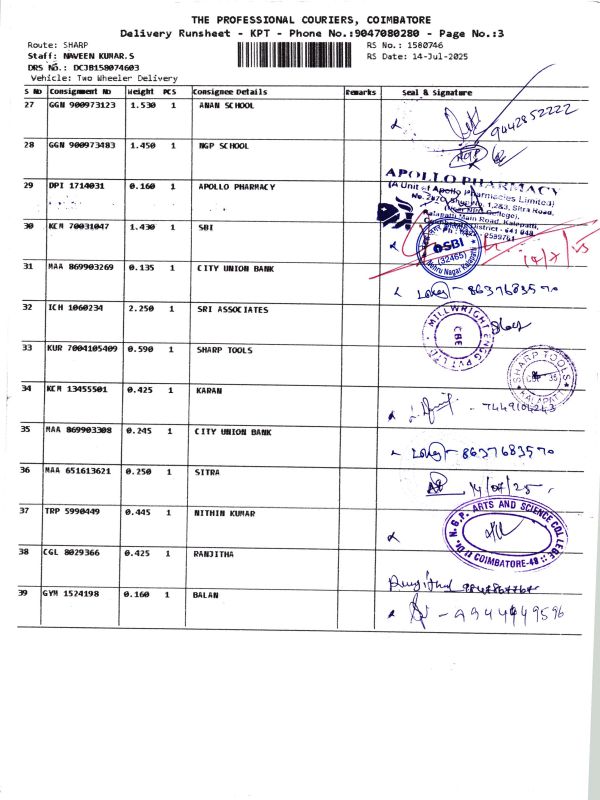 THE PROFESSIONAL COURIERS, COIMBATORE
Delivery Runsheet - KPT - Phone No.:9047080280 - Page No.:3
Route: SHARP RS No.: 1580746
Staff: NAVEEN KUMAR.S RS Date: 14-Jul-2025
DRS No.: DCJB158074603
Vehicle: Two Wheeler Delivery
S No Consignment No Weight PCS Consignee Details Remarks Seal & Signature
27 GGN 900973123 1.530 1 ANAN SCHOOL
9042852222
28 GGN 900973483 1.450 1 NGP SCHOOL
NGP
29 DPI 1714031 0.160 1 APOLLO PHARMACY
APOLLO PHARMACY
(A Unit of Apollo Pharmacies Limited)
No. Shop No. 1,2&3, Sitra Road,
(Near NGP College),
Kalapatti Main Road, Kalapatti,
Coimbatore District - 641 048.
30 KCM 70031047 1.430 1 SBI
SBI
(32465)
Nehru Nagar Kalapatti
14/7/25
31 MAA 869903269 0.135 1 CITY UNION BANK
8637683570
32 ICH 1060234 2.250 1 SRI ASSOCIATES
MILLWRIGHT ENGG PVT LTD
CBE
33 KUR 7004105409 0.590 1 SHARP TOOLS
SHARP TOOLS
CBE 35
KALAPATTI
34 KCM 13455501 0.425 1 KARAN
7449104243
35 MAA 869903308 0.245 1 CITY UNION BANK
8637683570
36 MAA 651613621 0.250 1 SITRA
14/07/25
37 TRP 5990449 0.445 1 NITHIN KUMAR
Dr. N.G.P. ARTS AND SCIENCE COLLEGE
COIMBATORE-48
38 CGL 8029366 0.425 1 RANJITHA
Ranjitha
39 GYM 1524198 0.160 1 BALAN
9944949596